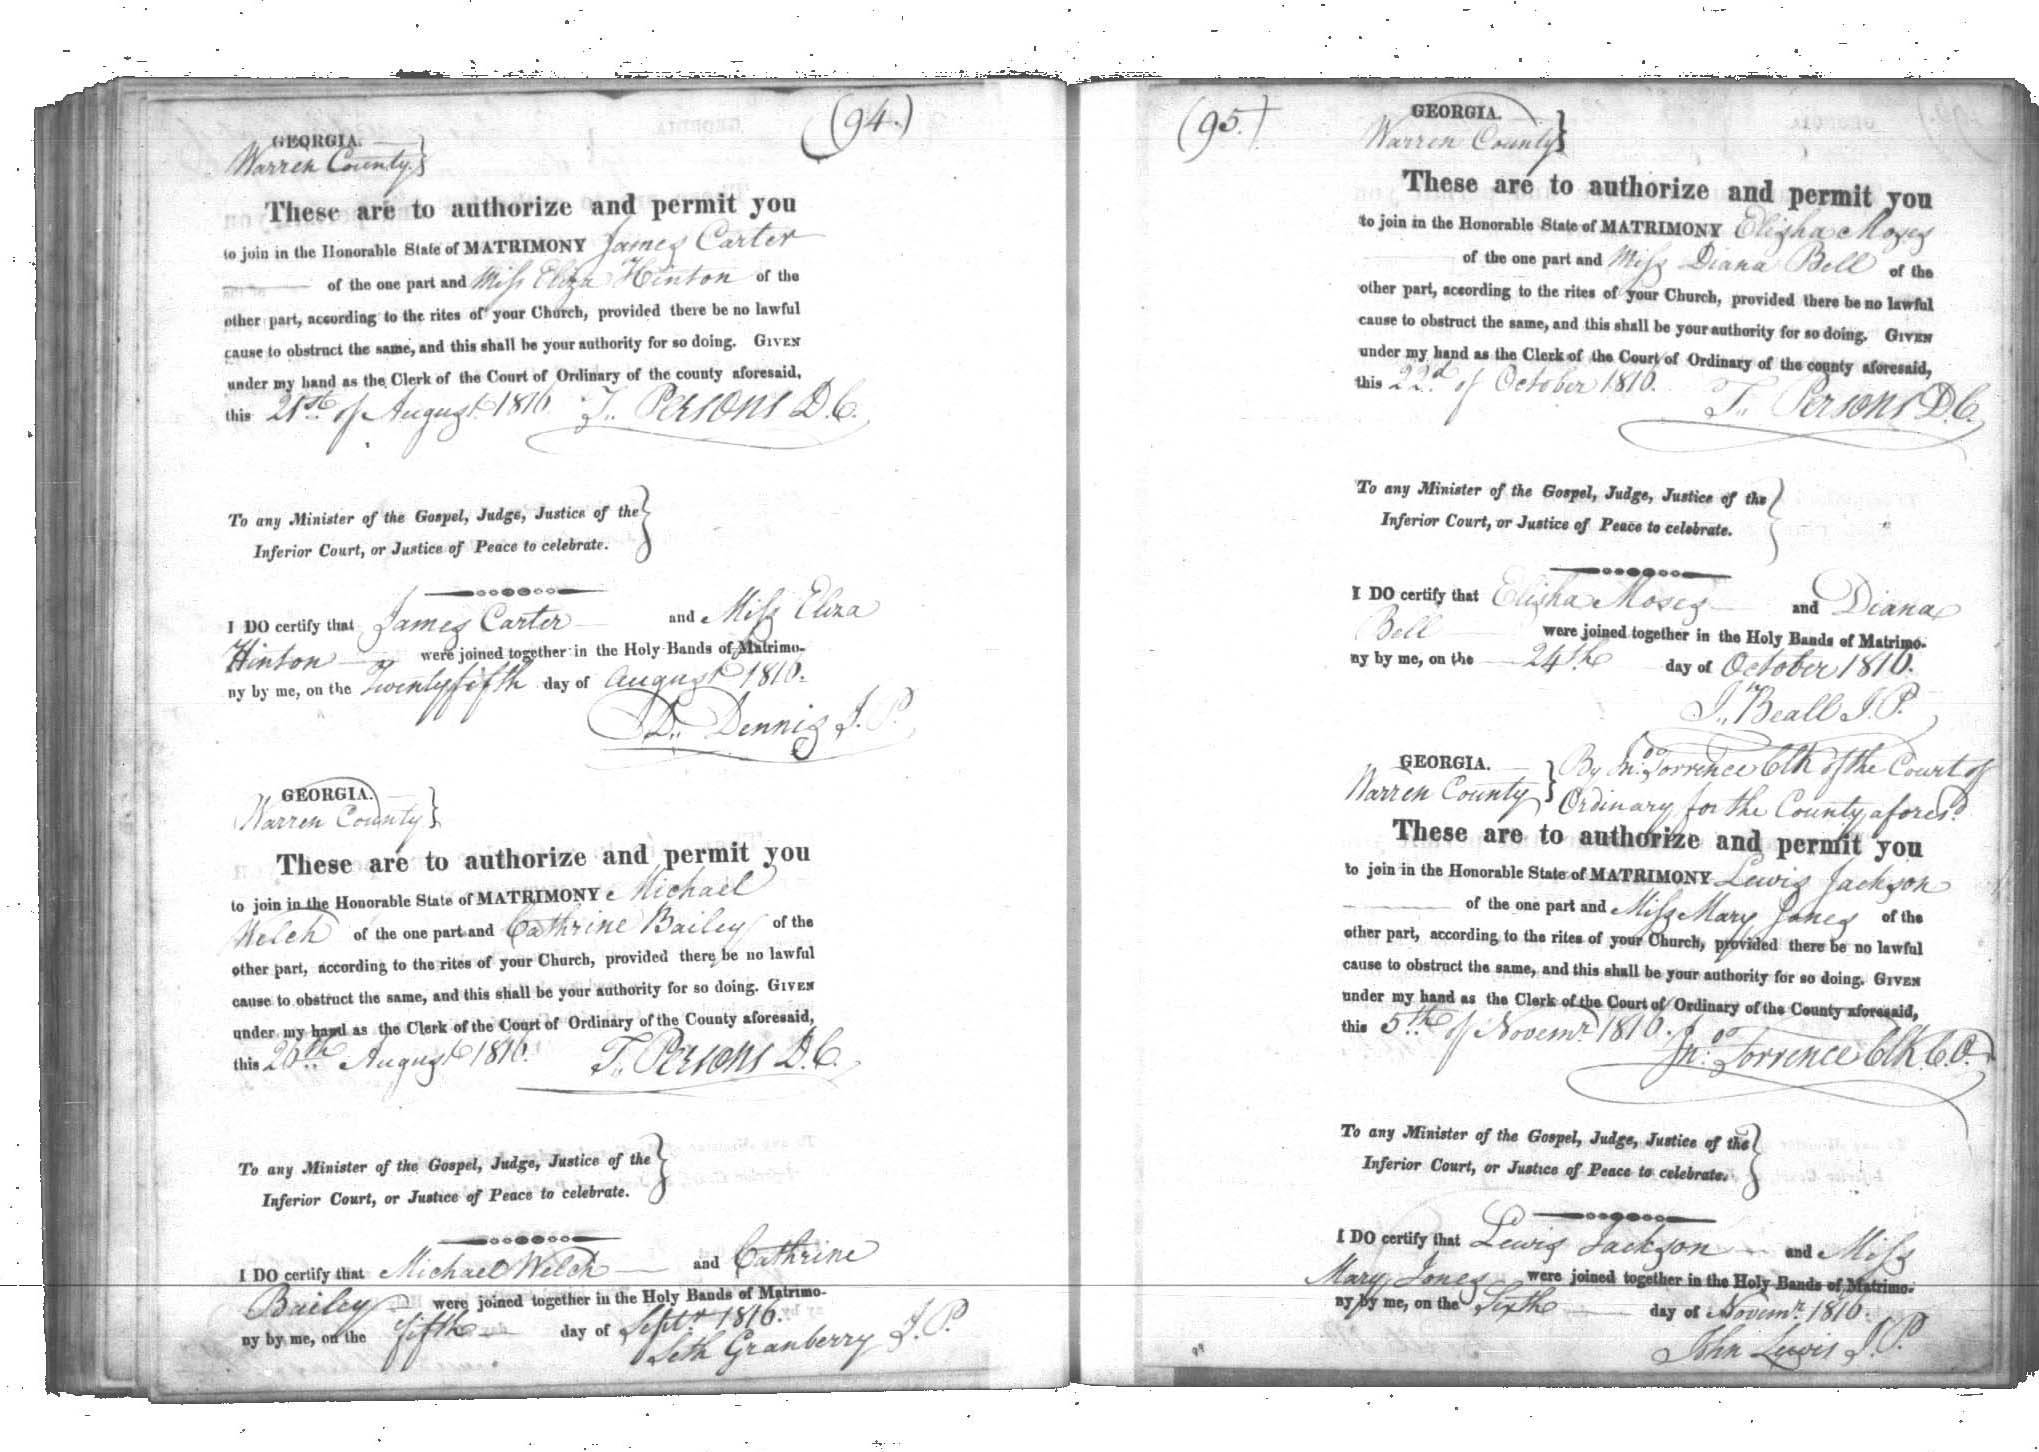 (94.)
GEORGIA.
Warren County.}
These are to authorize and permit you
to join in the Honorable State of MATRIMONY James Carter
of the one part and Miss Eliza Hinton of the
other part, according to the rites of your Church, provided there be no lawful
cause to obstruct the same, and this shall be your authority for so doing. GIVEN
under my hand as the Clerk of the Court of Ordinary of the county aforesaid,
this 21st. of August 1816. T. Persons D.C.
To any Minister of the Gospel, Judge, Justice of the }
Inferior Court, or Justice of Peace to celebrate.
I DO certify that James Carter and Miss Eliza
Hinton were joined together in the Holy Bands of Matrimo-
ny by me, on the Twenty fifth day of August 1816.
D. Dennis J. P.
GEORGIA.
Warren County}
These are to authorize and permit you
to join in the Honorable State of MATRIMONY Michael
Welch of the one part and Cathrine Bailey of the
other part, according to the rites of your Church, provided there be no lawful
cause to obstruct the same, and this shall be your authority for so doing. GIVEN
under my hand as the Clerk of the Court of Ordinary of the County aforesaid,
this August 1816. T. Persons D.C.
To any Minister of the Gospel, Judge, Justice of the }
Inferior Court, or Justice of Peace to celebrate.
I DO certify that Michael Welch and Cathrine
Bailey were joined together in the Holy Bands of Matrimo-
ny by me, on the fifth day of Septr. 1816.
Seth Granberry J. P.
(95.)
GEORGIA.
Warren County}
These are to authorize and permit you
to join in the Honorable State of MATRIMONY Elisha Moses
of the one part and Miss Diana Bell of the
other part, according to the rites of your Church, provided there be no lawful
cause to obstruct the same, and this shall be your authority for so doing. GIVEN
under my hand as the Clerk of the Court of Ordinary of the county aforesaid,
this 22d. of October 1816. T. Persons D.C.
To any Minister of the Gospel, Judge, Justice of the }
Inferior Court, or Justice of Peace to celebrate.
I DO certify that Elisha Moses and Diana
Bell were joined together in the Holy Bands of Matrimo-
ny by me, on the 24th day of October 1816.
Beall J. P.
GEORGIA. } By Jno. Torrence Clk of the Court of
Warren County } Ordinary for the County aforesd.
These are to authorize and permit you
to join in the Honorable State of MATRIMONY Lewis Jackson
of the one part and Miss Mary Jones of the
other part, according to the rites of your Church, provided there be no lawful
cause to obstruct the same, and this shall be your authority for so doing. GIVEN
under my hand as the Clerk of the Court of Ordinary of the County aforesaid,
this 5th. of Novemr. 1816. Jno. Torrence Clk. C.O.
To any Minister of the Gospel, Judge, Justice of the }
Inferior Court, or Justice of Peace to celebrate.
I DO certify that Lewis Jackson and Miss
Mary Jones were joined together in the Holy Bands of Matrimo-
ny by me, on the Sixth day of Novemr. 1816.
John Lewis J. P.